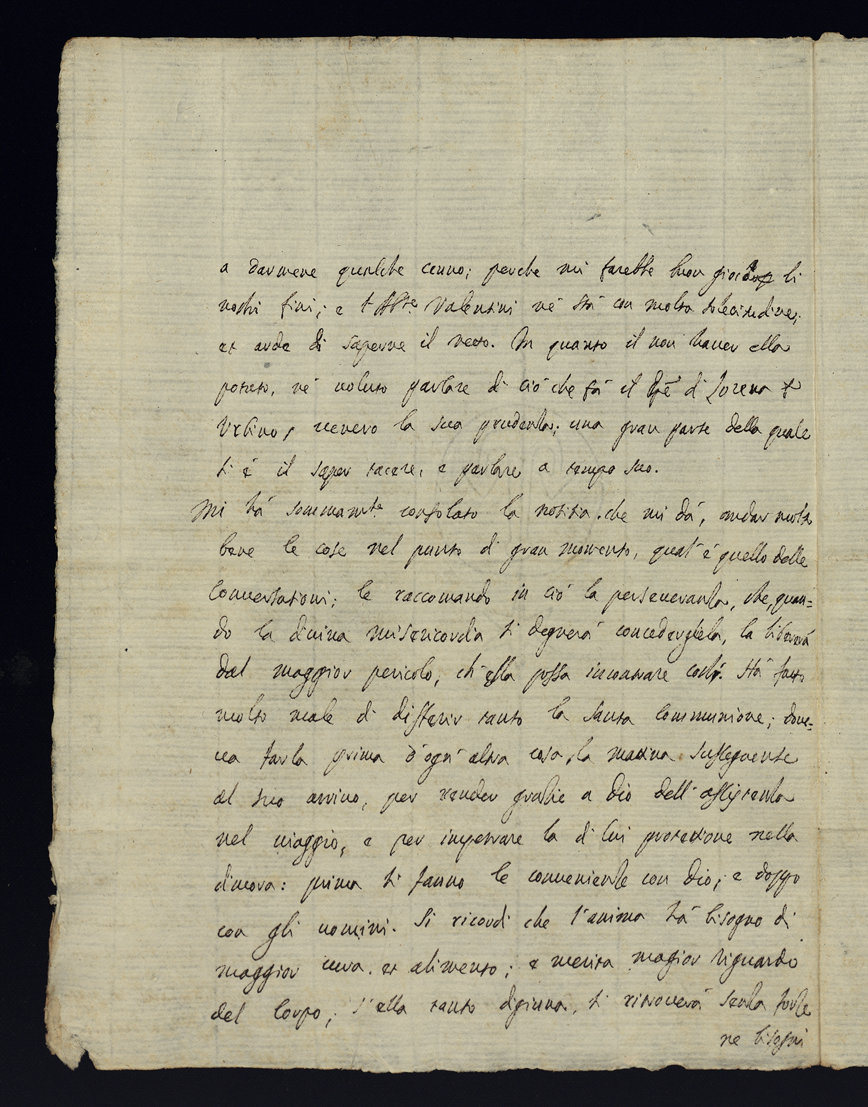 a darmene qualche cenno; perche mi farebbe buon gioco li
nostri fini; e l'Abbte Valentini ne stà con molta solecitudine,
et arde di saperne il netto. In quanto il non haver ella
potuto, né voluto parlare di ciò che fà il Ppe di Lorena
Urbino, venero la sua prudenza; una gran parte della quale
si è il saper tacere, e parlare a tempo suo.
Mi hà sommamte consolato la notitia che mi dà, andar molto
bene le cose nel punto di gran momento, qual'è quello delle
Conversationi; le raccomando in ciò la perseveranza, che, quan=
do la divina misericordia si degnerà concedergliela, la libererà
dal maggior pericolo, ch'ella possa incontrare costì. Hà fatto
molto male di differir tanto la santa Communione; dove=
va farla prima d'ogn'altra cosa, la mattina susseguente
al suo arrivo, per render grazie a Dio dell'assistenza
nel viaggio, e per impetrare la di lui protettione nella
dimora: prima si fanno le convenienze con Dio; e doppo
con gli uomini. Si ricordi che l'anima hà bisogno di
maggior cura, et alimento; e merita magior riguardo
del Corpo; s'ella tanto digiuna, si ritroverà senza forze
ne bisogni